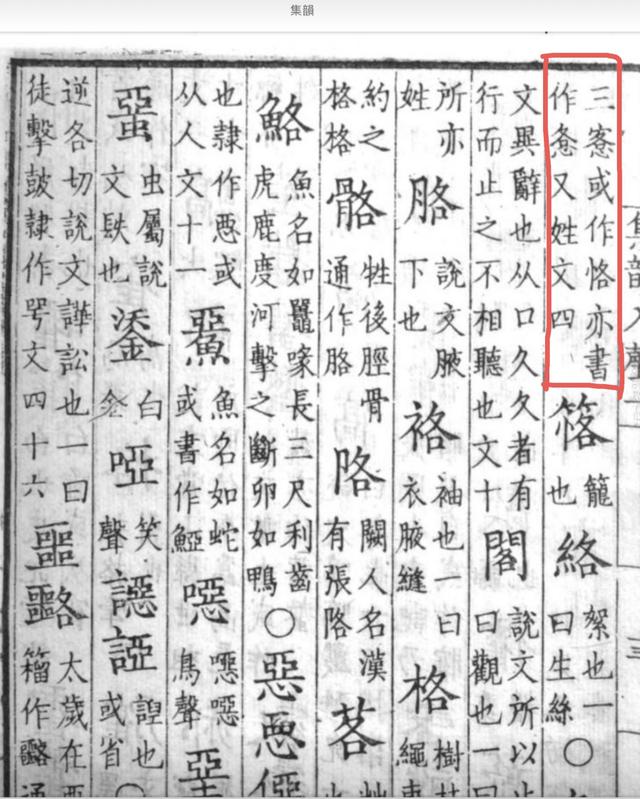 集韻
三愙或作恪亦書
作又姓文四
笿
籠
也
絡
絮也一
曰生絲
○
文異辭也从口久久者有
行而止之不相聽也文十
閣
說文所以止
曰觀也一曰
所亦
姓
胳
說文腋
下也
袼
袖也一曰
衣腋縫
格
樹
繩
約之
格格
骼
牲後脛骨
通作胳
闕人名漢
有張
茖
鮥
魚名如鼉喙長三尺利齒
虎鹿度河擊之斷卵如鴨
○
惡
僫
也隸作惡或
从人文十一
魚名如蛇
或書作
噁
噁噁
鳥聲
堊
蝁
虫屬說
文镻也
鋈
白
金
啞
笑
聲
諻也
或省
○
逆各切說文譁訟也一曰
徒擊鼓隸作咢文四十六
噩
太歲在酉
籀作